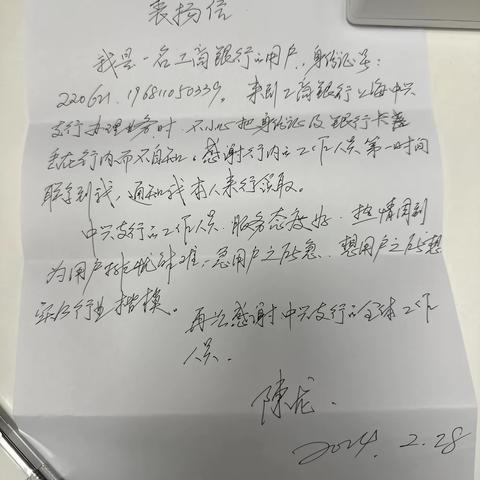 表扬信
我是一名工商银行的用户,身份证号:
220621.196811050339。来到工商银行上海中兴
支行办理业务时,不小心把身份证及银行卡遗
丢在行内而不自知。感谢行内的工作人员第一时间
联系到我,通知我本人来行领取。
中兴支行的工作人员,服务态度好,热情周到
为用户排忧解难,急用户之所急,想用户之所想
实为行业楷模。
再次感谢中兴支行的全体工作
人员.
陈龙.
2024.2.28